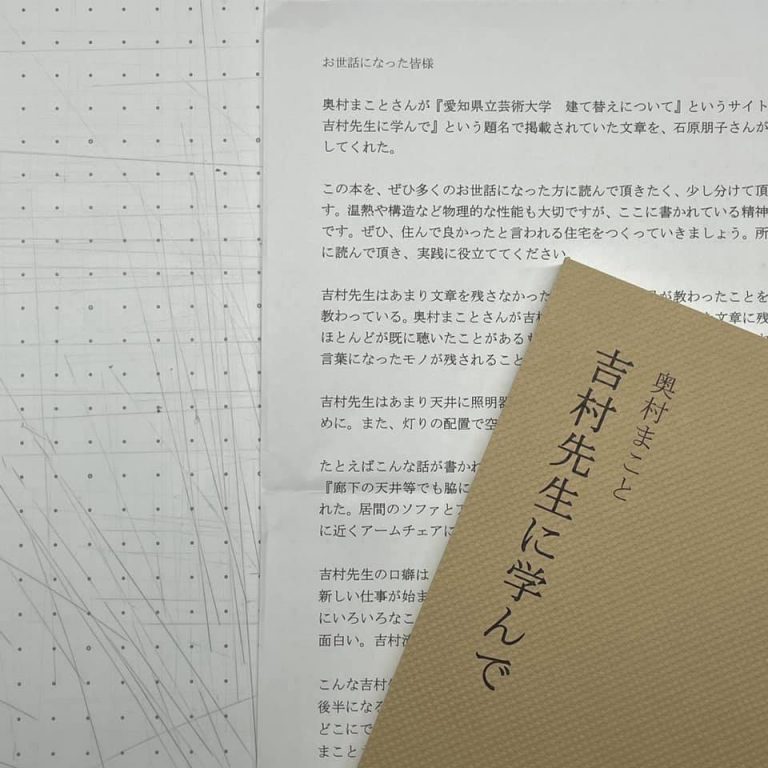 お世話になった皆様
奥村まことさんが『愛知県立芸術大学　建て替えについて』というサイト
吉村先生に学んで』という題名で掲載されていた文章を、石原朋子さんが
してくれた。
この本を、ぜひ多くのお世話になった方に読んで頂きたく、少し分けて頂
す。温熱や構造など物理的な性能も大切ですが、ここに書かれている精神
です。ぜひ、住んで良かったと言われる住宅をつくっていきましょう。所
に読んで頂き、実践に役立ててください。
吉村先生はあまり文章を残さなかった
が教わったことを
教わっている。奥村まことさんが吉村
文章に残
ほとんどが既に聴いたことがある
言葉になったモノが残されること
吉村先生はあまり天井に照明器
めに。また、灯りの配置で空
たとえばこんな話が書かれ
『廊下の天井等でも脇に
れた。居間のソファと
に近くアームチェアに
吉村先生の口癖は
新しい仕事が始ま
にいろいろなこ
面白い。吉村
こんな吉村
後半になる
どこにで
まこと
奥村まこと
吉村先生に学んで